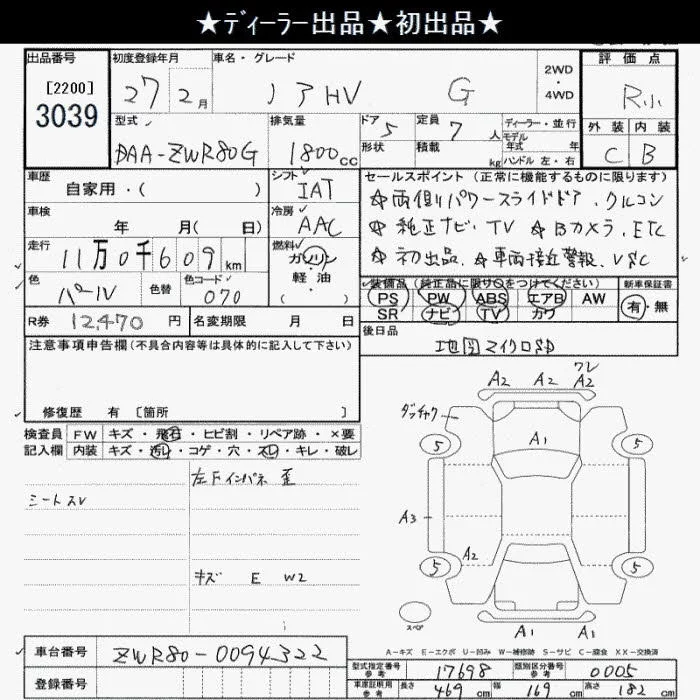 ★ﾃﾞｨｰﾗｰ出品★初出品★
出品番号 初度登録年月 車名・グレード 2WD・4WD 評価点
[2200]
3039
27年2月 ノアHV G R小
型式 排気量 ドア 定員 ディーラー・並行
DAA-ZWR80G 1800cc 5 7人
モデル年式 年
形状 積載 kg ハンドル 左・右
外装 内装
C B
車歴 自家用・( )
シフト IAT
セールスポイント（正常に機能するものに限ります）
☆両側パワースライドドア、クルコン
車検 年 月( 日)
冷房 AAC
☆純正ナビ、TV ☆Bカメラ、ETC
走行 11万0千609km
燃料 ガソリン・軽油 ( )
☆初出品、☆車両接近警報、VSC
色 パール 色替 色コード 070
装備品（純正品に限り○をつけてください） 新車保証書
PS PW ABS エアB AW
SR ナビ TV カワ
有・無
R券 12,470円 名変期限 月 日
後日品
地図マイクロSD
注意事項申告欄(不具合内容等は具体的に記入して下さい)
修復歴 有 [箇所 ]
検査員記入欄
FW キズ・飛石・ヒビ割・リペア跡・×要
内装 キズ・汚れ・コゲ・穴・スレ・キレ・破レ
シートスレ
左Fインパネ 歪
キズ E W2
ワレ
A2 A2 A2
A1
5 5
A3
A2
5 5
スペア
A1 A1
A-キズ E-エクボ U-凹み W-補修跡 S-サビ C-腐食 XX-交換済
車台番号 ZWR80-0094322
登録番号
型式指定番号 参考 17698 類別区分番号 参考 0005
車庫証明用 参考 長さ 469cm 幅 169cm 高さ 182cm